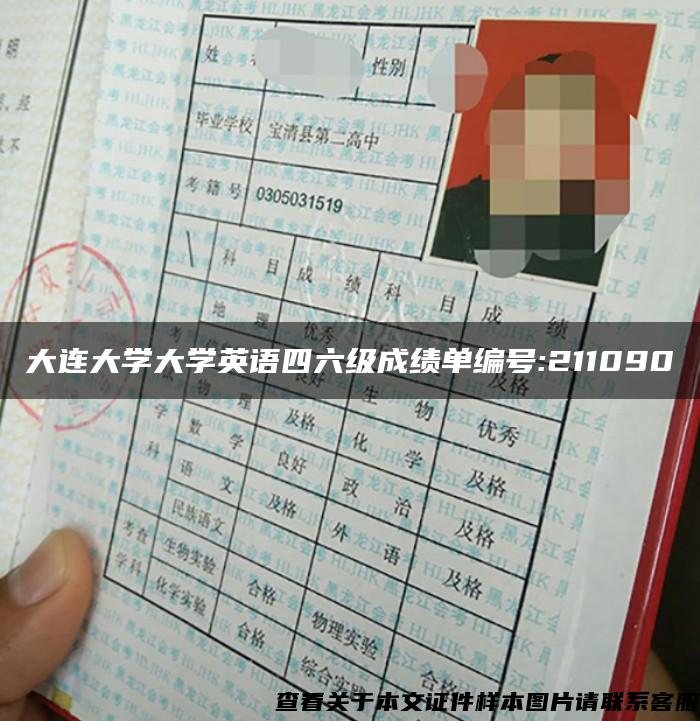 姓 性别
毕业学校 宝清县第二高中
考籍号 0305031519
科目 成绩 科目 成绩
地理 优秀
大连大学大学英语四六级成绩单编号:211090
物理 及格 生物 优秀
数学 良好 化学 及格
语文 及格 政治 及格
民族语文 外语 及格
考查学科 生物实验 合格 物理实验 合格
化学实验 合格 综合实
查看关于本文证件样本图片请联系客服